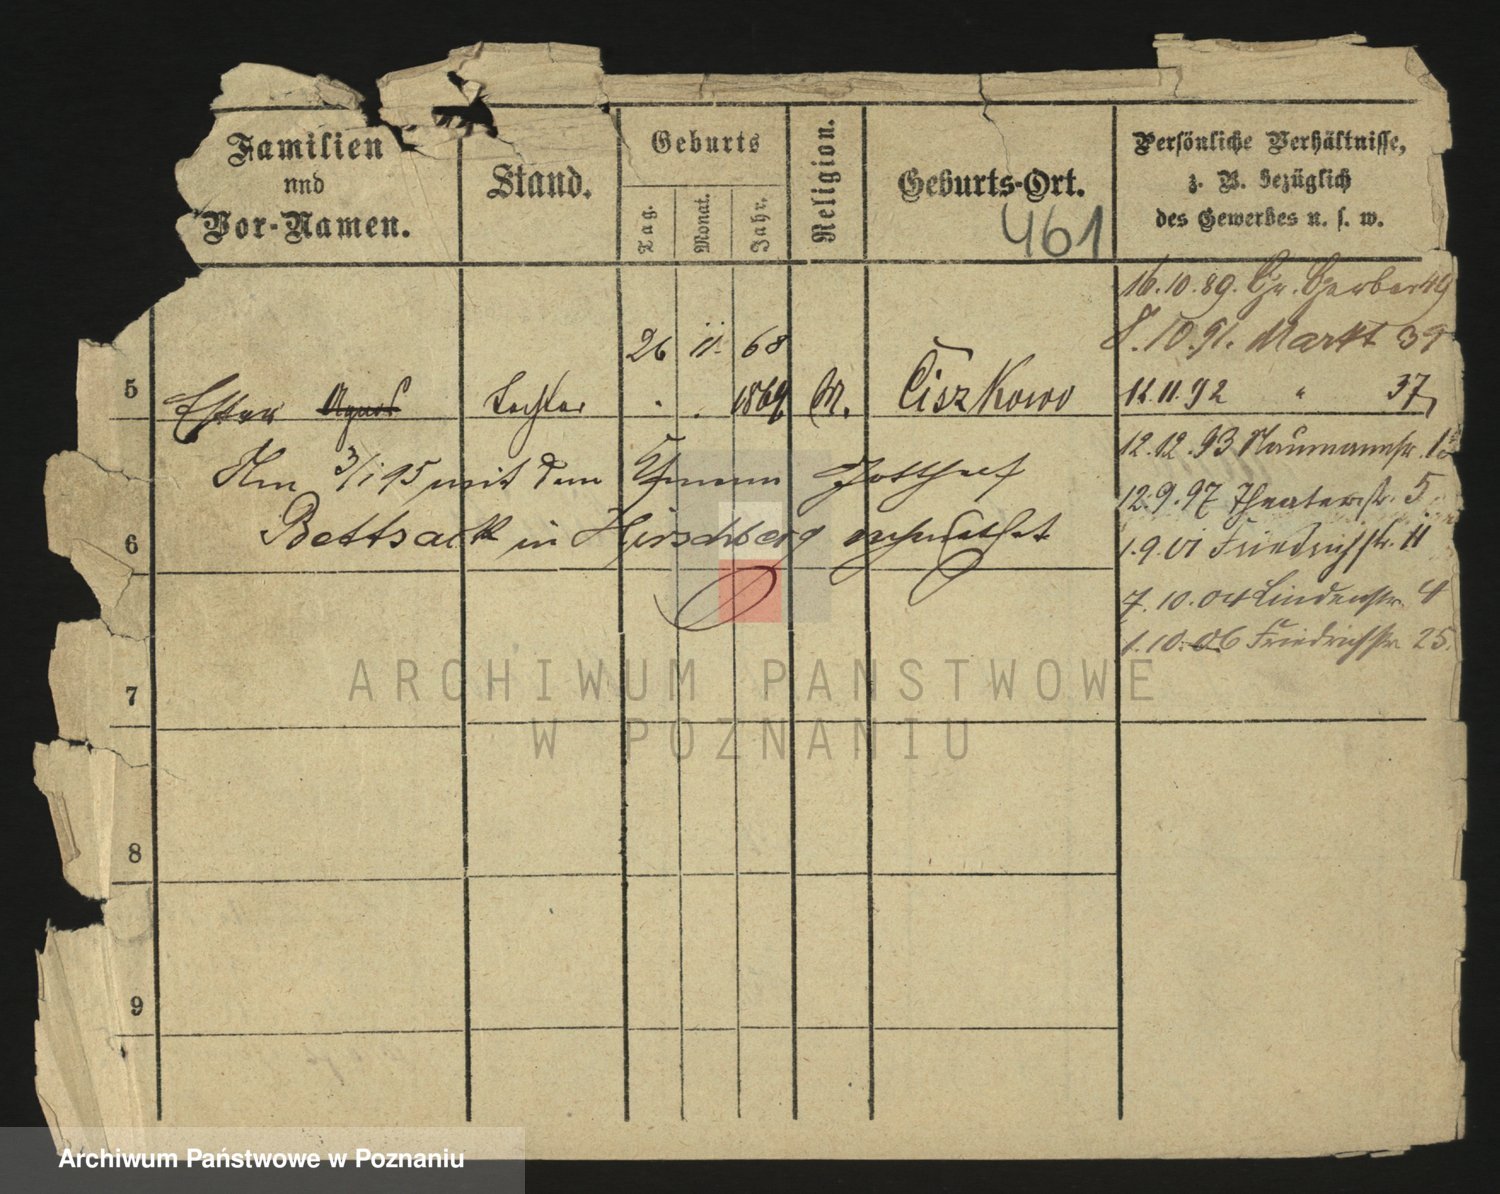 Familien
und
Vor-Namen.
Stand.
Geburts
Tag.
Monat.
Jahr.
Religion.
Geburts-Ort.
461
Persönliche Verhältnisse,
z. B. bezüglich
des Gewerbes u. s. w.
16.10.89. Gr. Gerber 49
8.10.91. Markt 39
26 11. 68
5 Ester Tochter 1869 M. Ciszkowo
12.11.92 " 37,
12.12.93 Naumannstr.
Am 3/1 95 mit dem Gotthelf
12.9.97 Theaterstr. 5
6 Bettsack in Hirschberg
1.9.01 Friedrichstr. 11
7.10.04 Lindenstr. 4
1.10.06 Friedrichstr. 25.
7
8
9
ARCHIWUM PAŃSTWOWE
W POZNANIU
Archiwum Państwowe w Poznaniu